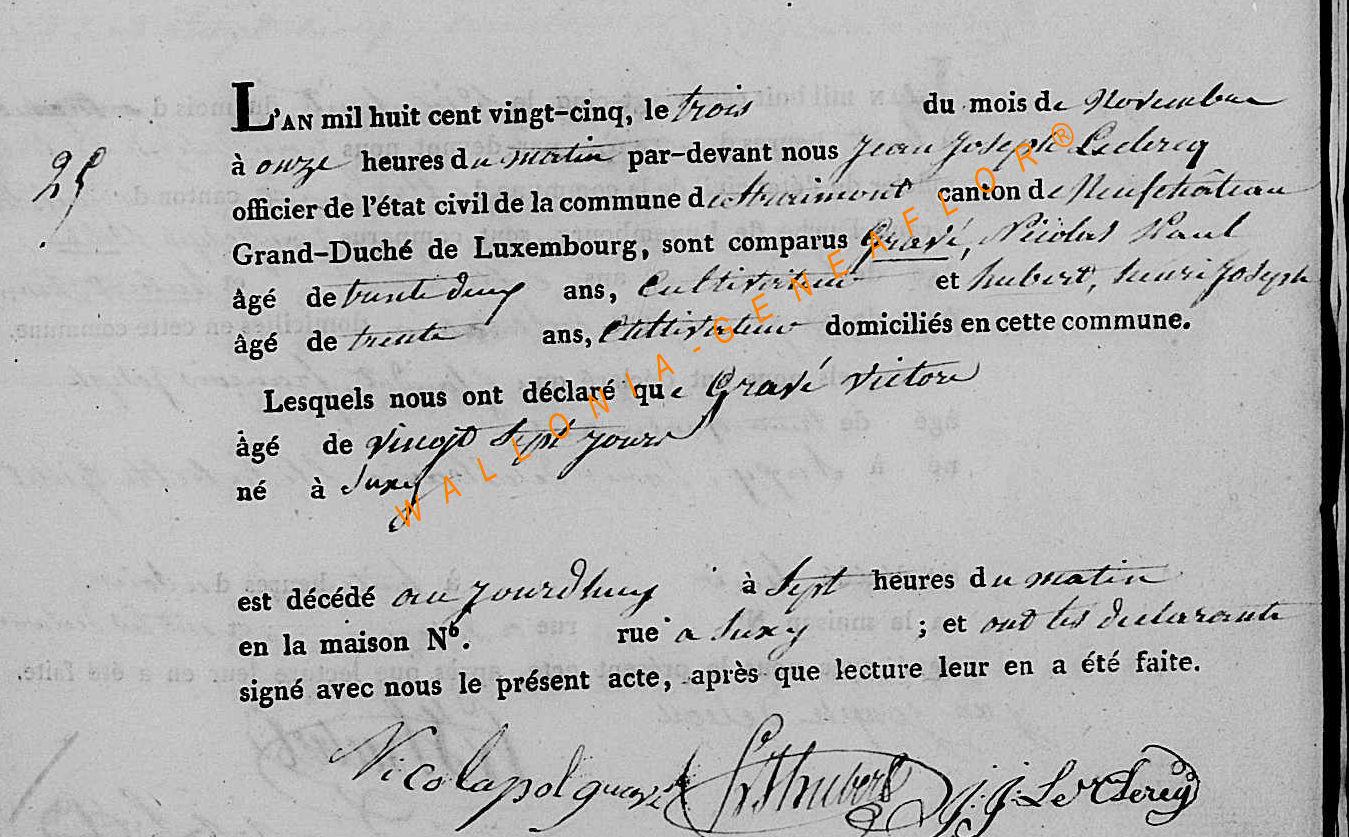 L'AN mil huit cent vingt-cinq, le trois du mois de Novembre
25
à onze heures du matin par-devant nous Jean Joseph Leclercq
officier de l'état civil de la commune de Straimont canton de Neufchâteau
Grand-Duché de Luxembourg, sont comparus Gravé, Nicolas Paul
âgé de trente deux ans, Cultivateur et hubert, henri Joseph
âgé de trente ans, Cultivateur domiciliés en cette commune.
Lesquels nous ont déclaré que Gravé Victore
âgé de vingt Sept jours
né à Suxy
WALLONIA-GENEAFLOR®
est décédé au jourdhuy à Sept heures du matin
en la maison Nº. rue a Suxy ; et ont les déclarants
signé avec nous le présent acte, après que lecture leur en a été faite.
Nicolapolgravé hubert J. J. LeClercq